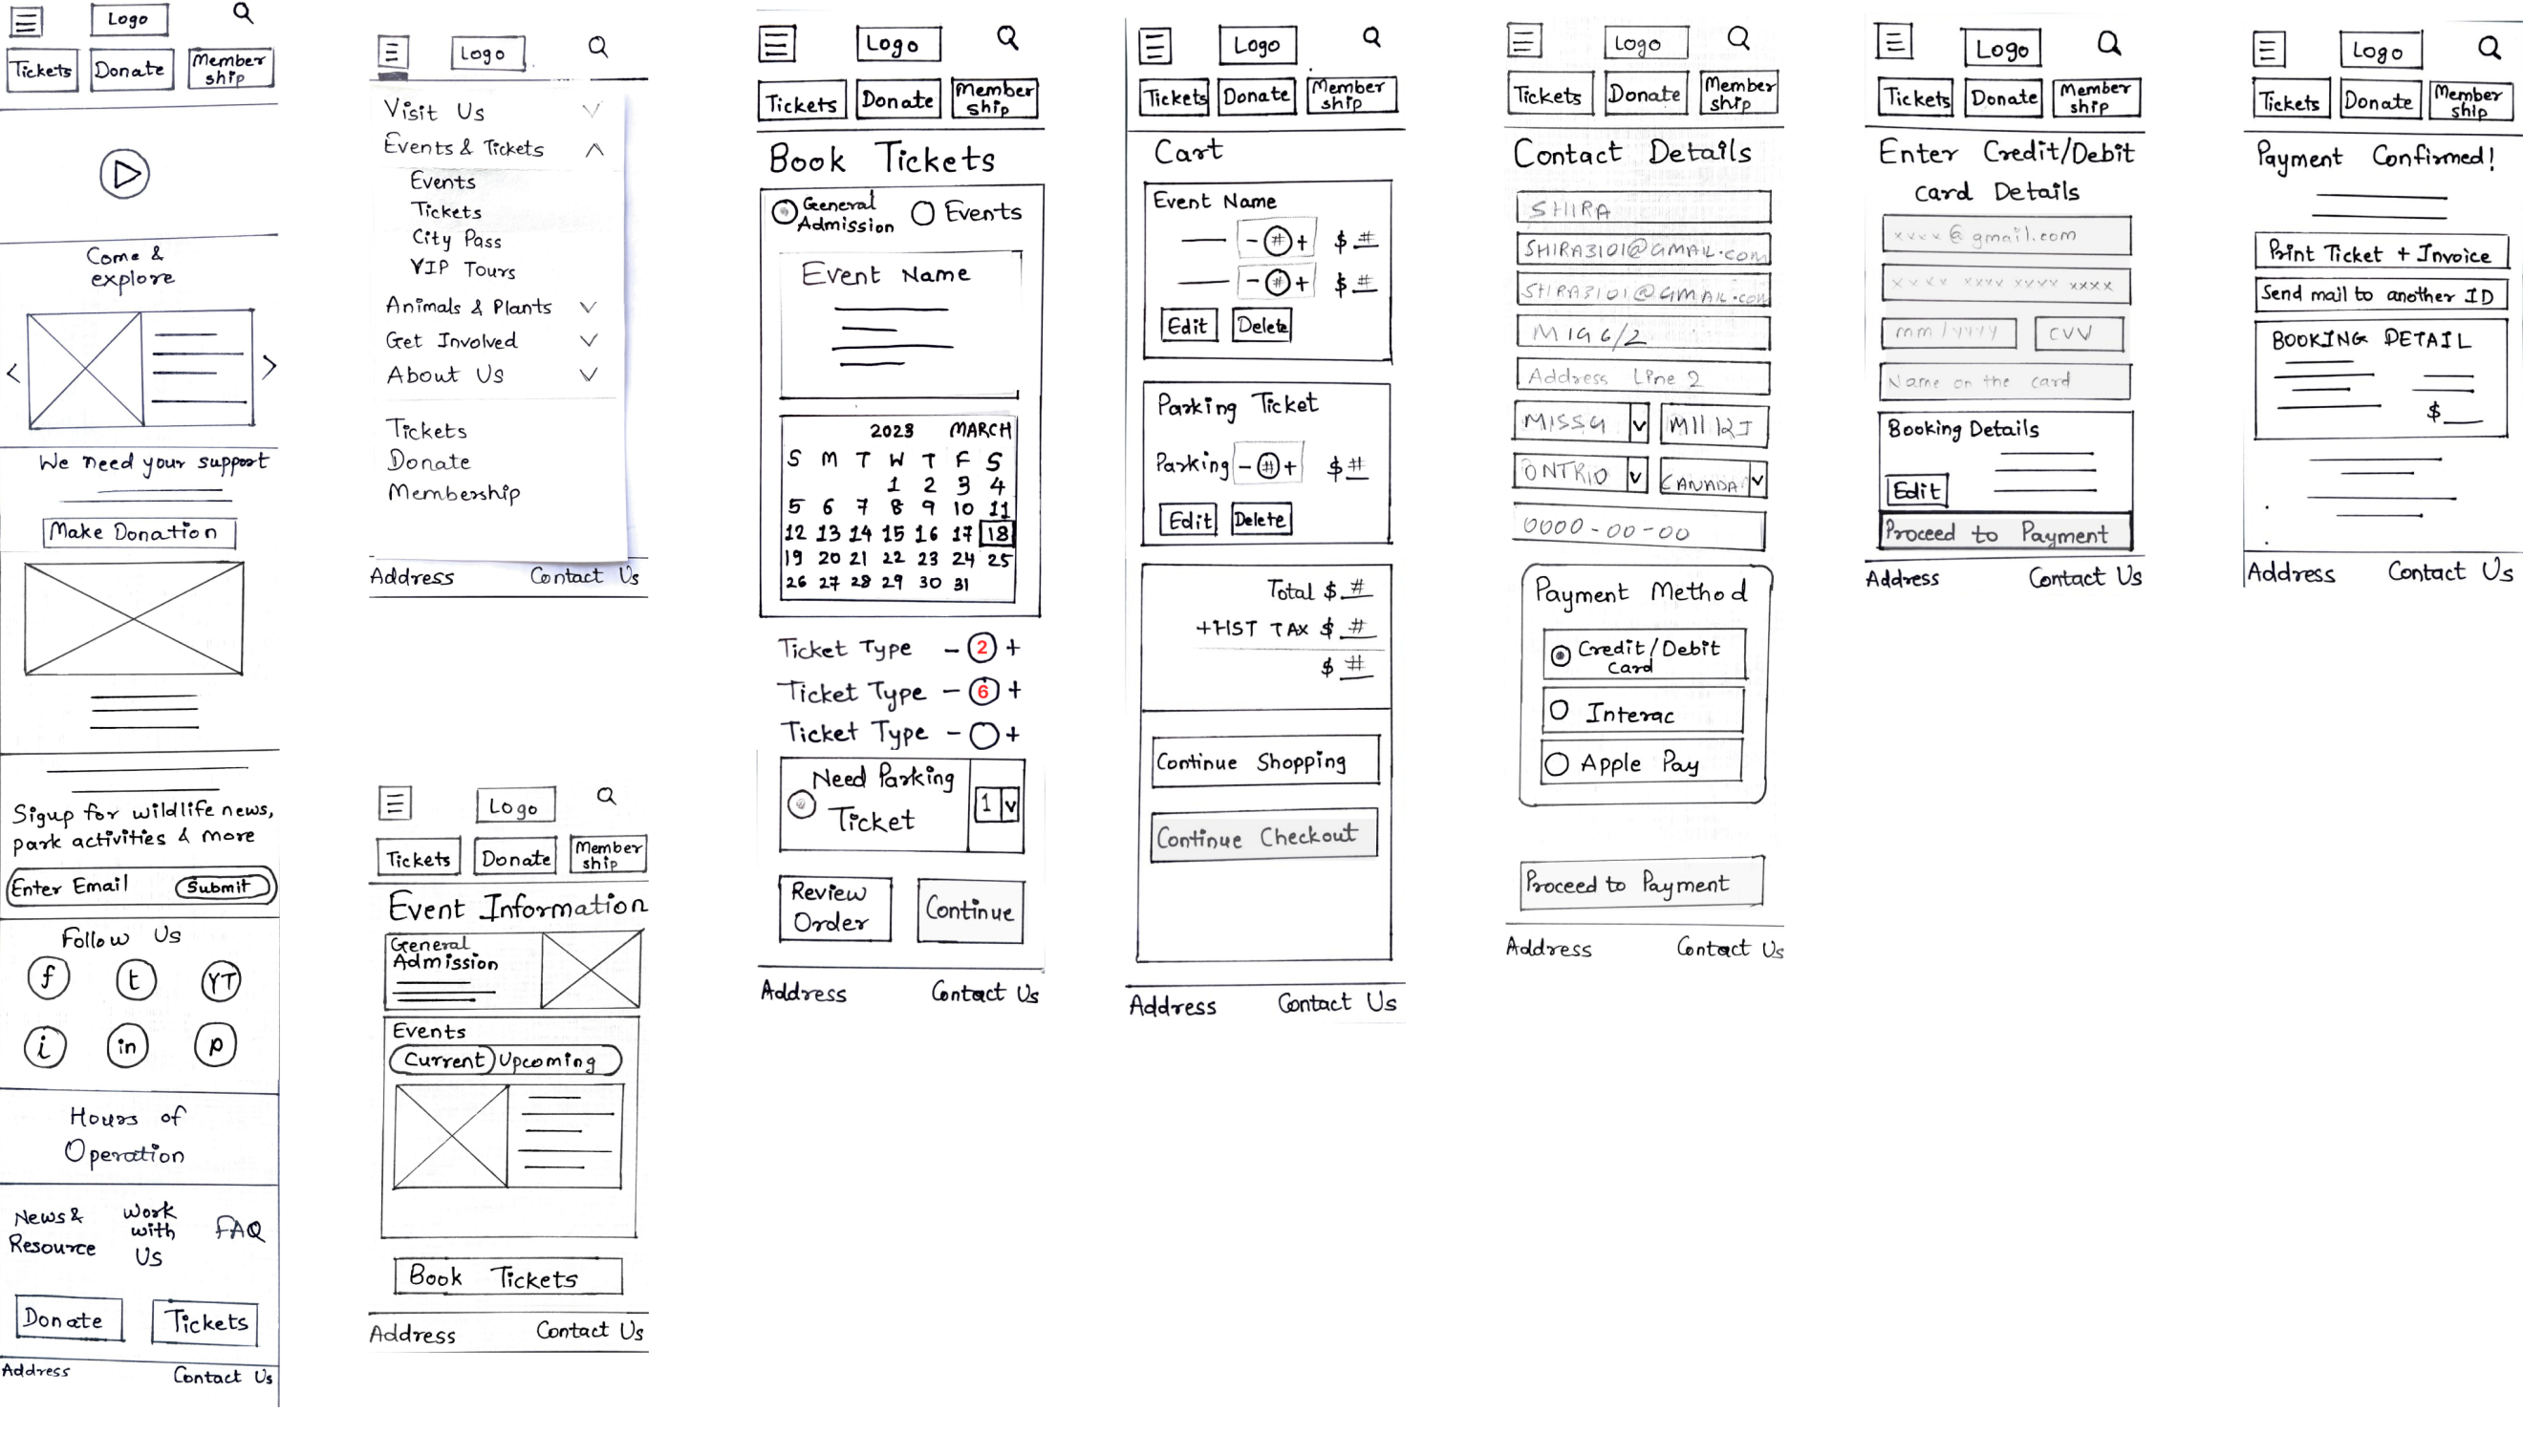 Logo
Tickets Donate Member
ship
Come &
explore
We need your support
Make Donation
Sigup for wildlife news,
park activities & more
Enter Email Submit
Follow Us
f t YT
i in p
Hours of
Operation
News &
Resource
Work
with
Us
FAQ
Donate Tickets
Address Contact Us
Logo
Visit Us
Events & Tickets
Events
Tickets
City Pass
VIP Tours
Animals & Plants
Get Involved
About Us
Tickets
Donate
Membership
Address Contact Us
Logo
Tickets Donate Member
ship
Event Information
General
Admission
Events
Current Upcoming
Book Tickets
Address Contact Us
Logo
Tickets Donate Member
ship
Book Tickets
General
Admission
Events
Event Name
2023 MARCH
S M T W T F S
1 2 3 4
5 6 7 8 9 10 11
12 13 14 15 16 17 18
19 20 21 22 23 24 25
26 27 28 29 30 31
Ticket Type - 2 +
Ticket Type - 6 +
Ticket Type - +
Need Parking
Ticket
1 v
Review
Order
Continue
Address Contact Us
Logo
Tickets Donate Member
ship
Cart
Event Name
- # + $ #
- # + $ #
Edit Delete
Parking Ticket
Parking - # + $ #
Edit Delete
Total $ #
+HST TAX $ #
$ #
Continue Shopping
Continue Checkout
Address Contact Us
Logo
Tickets Donate Member
ship
Contact Details
SHIRA
SHIRA3101@GMAIL.com
SHIRA3101@GMAIL.com
MIG 6/2
Address Line 2
ONTRIO CANADA
0000-00-00
Payment Method
Credit/Debit
Card
Interac
Apple Pay
Proceed to Payment
Address Contact Us
Logo
Tickets Donate Member
ship
Enter Credit/Debit
Card Details
xxxx@gmail.com
xxxx xxxx xxxx xxxx
mm/yyyy CVV
Name on the card
Booking Details
Edit
Proceed to Payment
Address Contact Us
Logo
Tickets Donate Member
ship
Payment Confirmed!
Print Ticket + Invoice
Send mail to another ID
BOOKING DETAIL
$
Address Contact Us